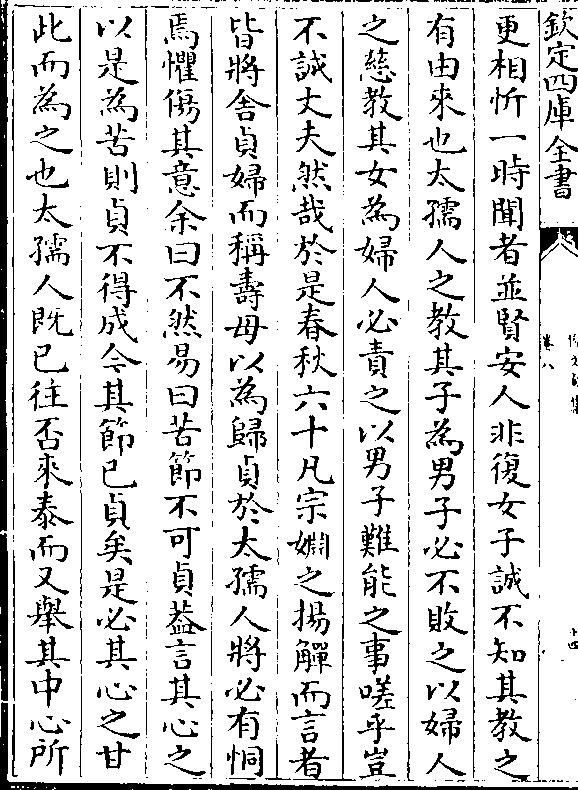 欽定四庫全書
卷八
更相忻一時聞者並賢安人非復女子誠不知其教之
有由來也太孺人之教其子為男子必不敗之以婦人
之慈教其女為婦人必責之以男子難能之事嗟乎豈
不誠丈夫然哉於是春秋六十凡宗嫺之揚觶而言者
皆將舍貞婦而稱壽母以為歸貞於太孺人將必有恫
焉懼傷其意余曰不然易曰苦節不可貞葢言其心之
以是為苦則貞不得成今其節已貞矣是必其心之甘
此而為之也太孺人既已往否來泰而又舉其中心所